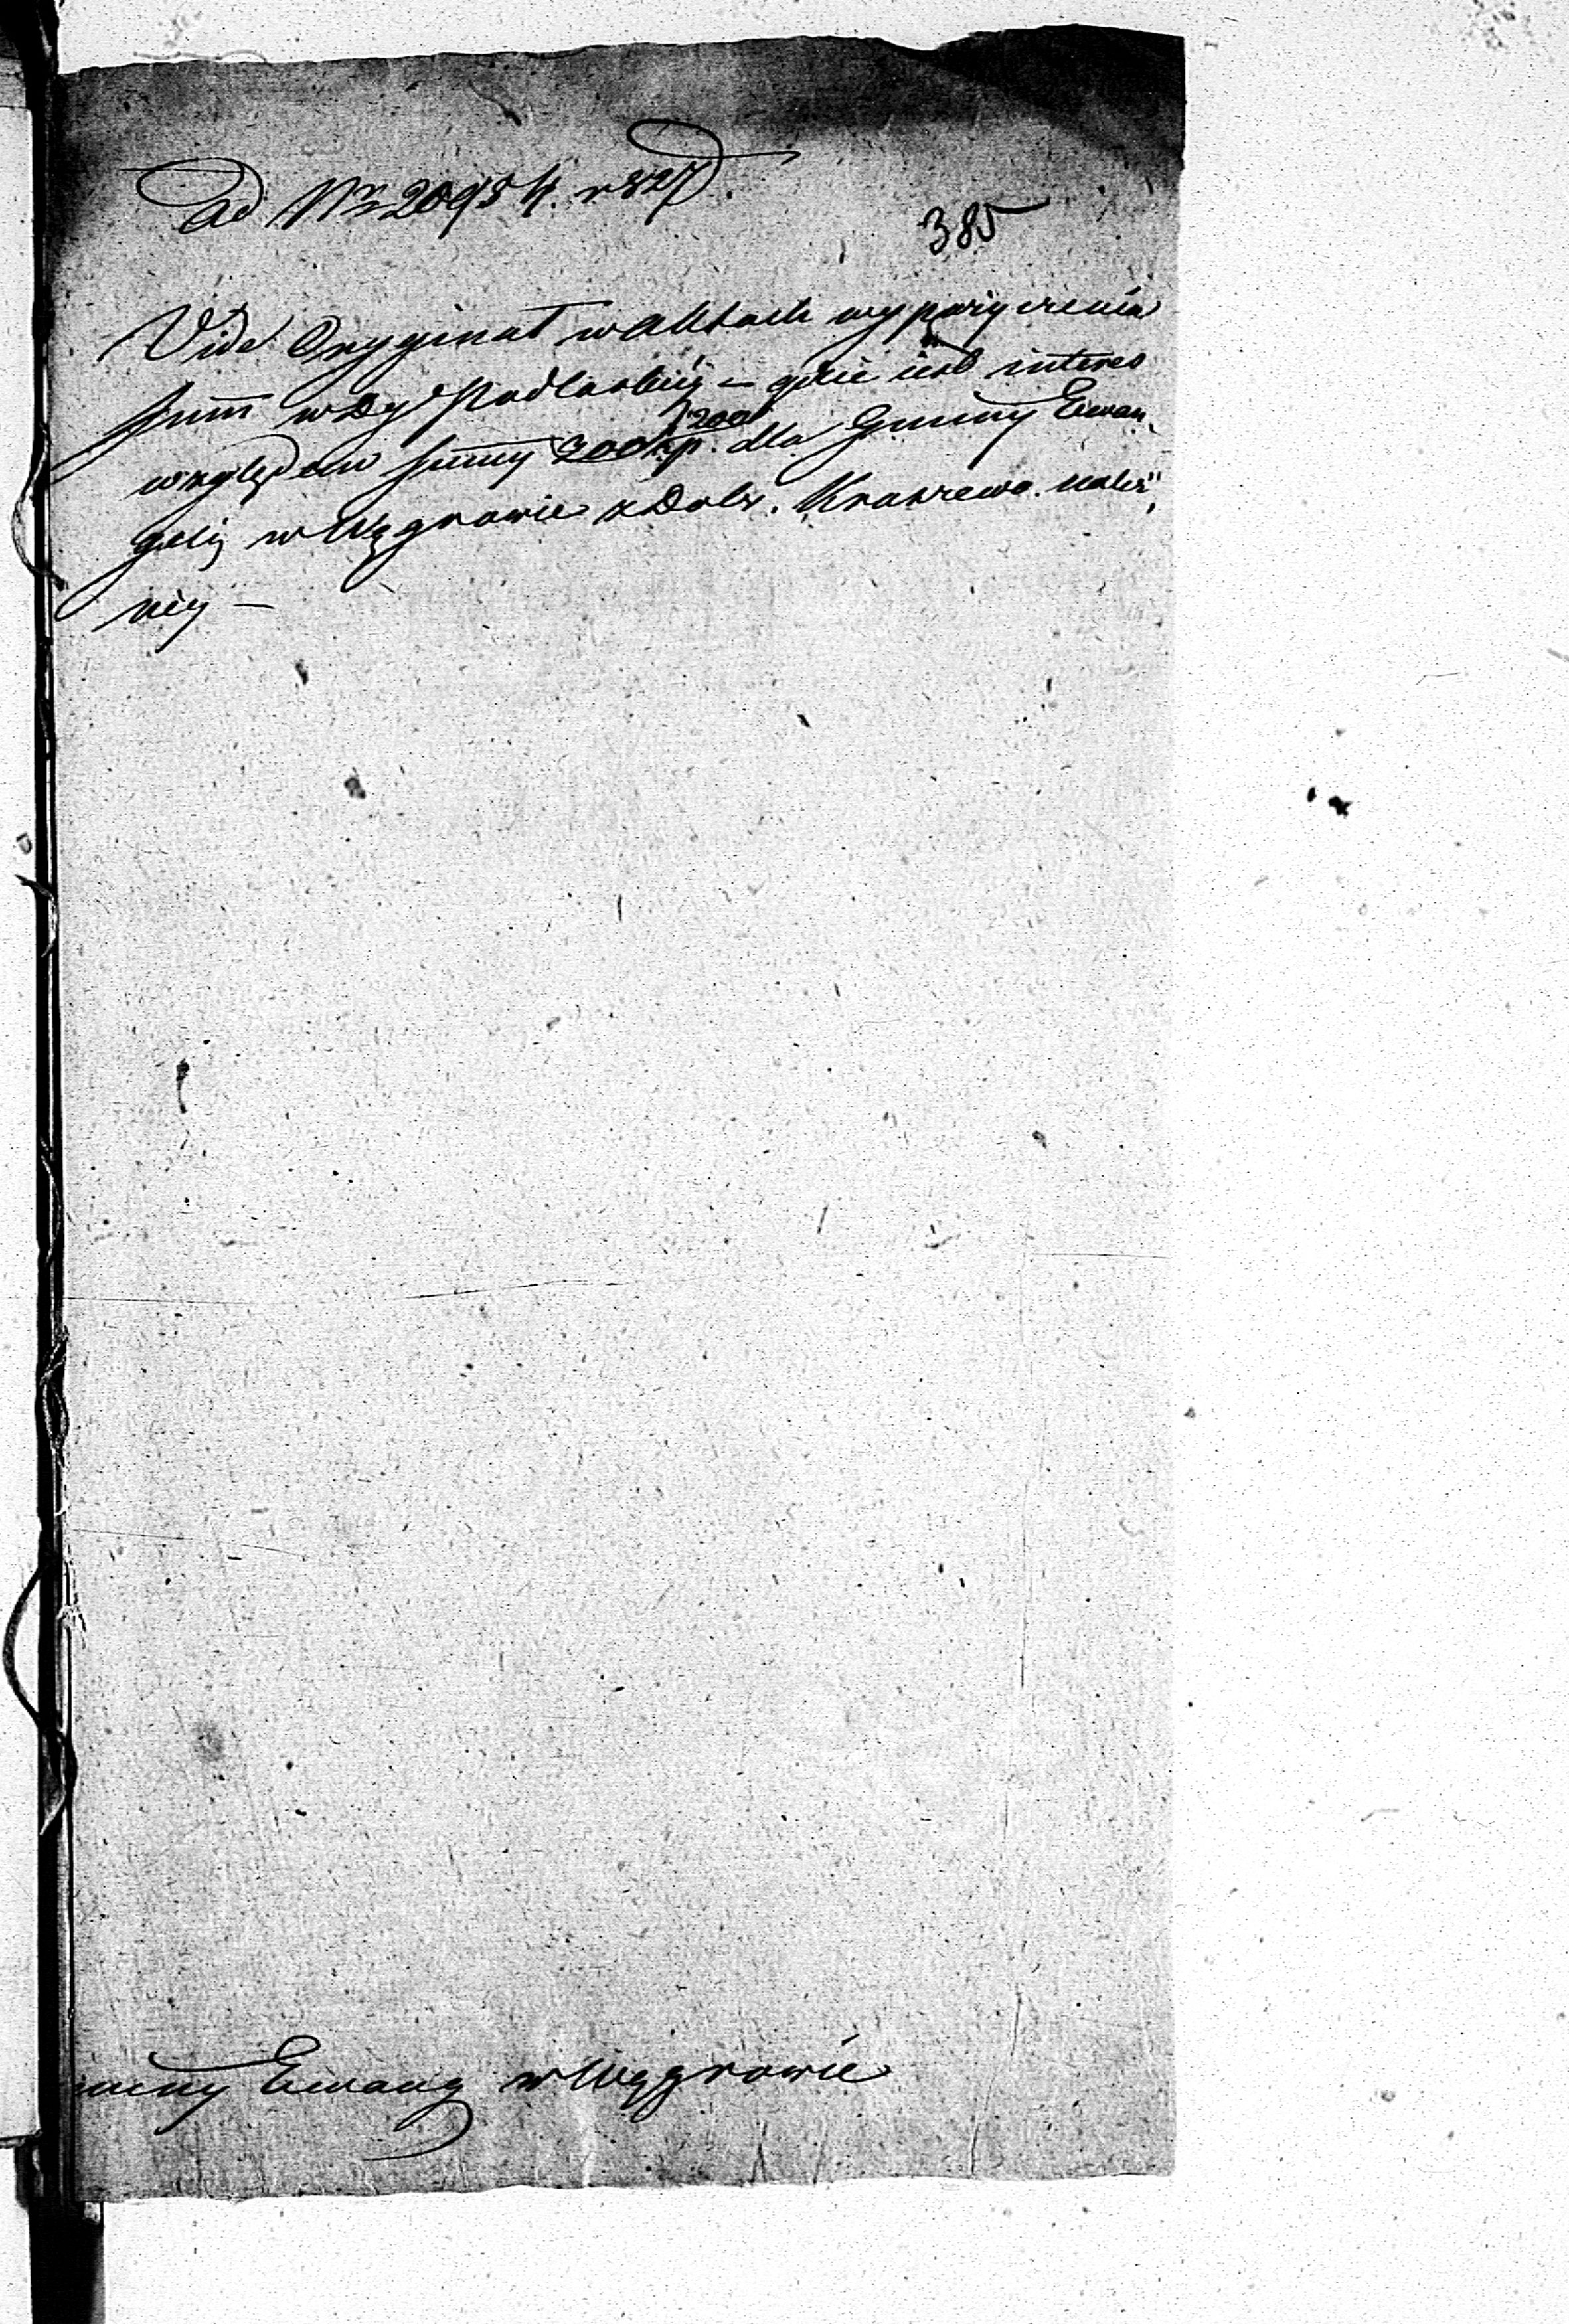 Ad Nr 2093 k. r 827.
385
Vide Oryginał w Aktach wypożyczenia
Summ w Dye Podlaskiéy – gdzie iest interes
względem summy zp. 200 dla Gminy Ewan,
gelię w Węgrowie z Dobr. Krakzewo. należ,
néy –
miny Ewang w Węgrowie